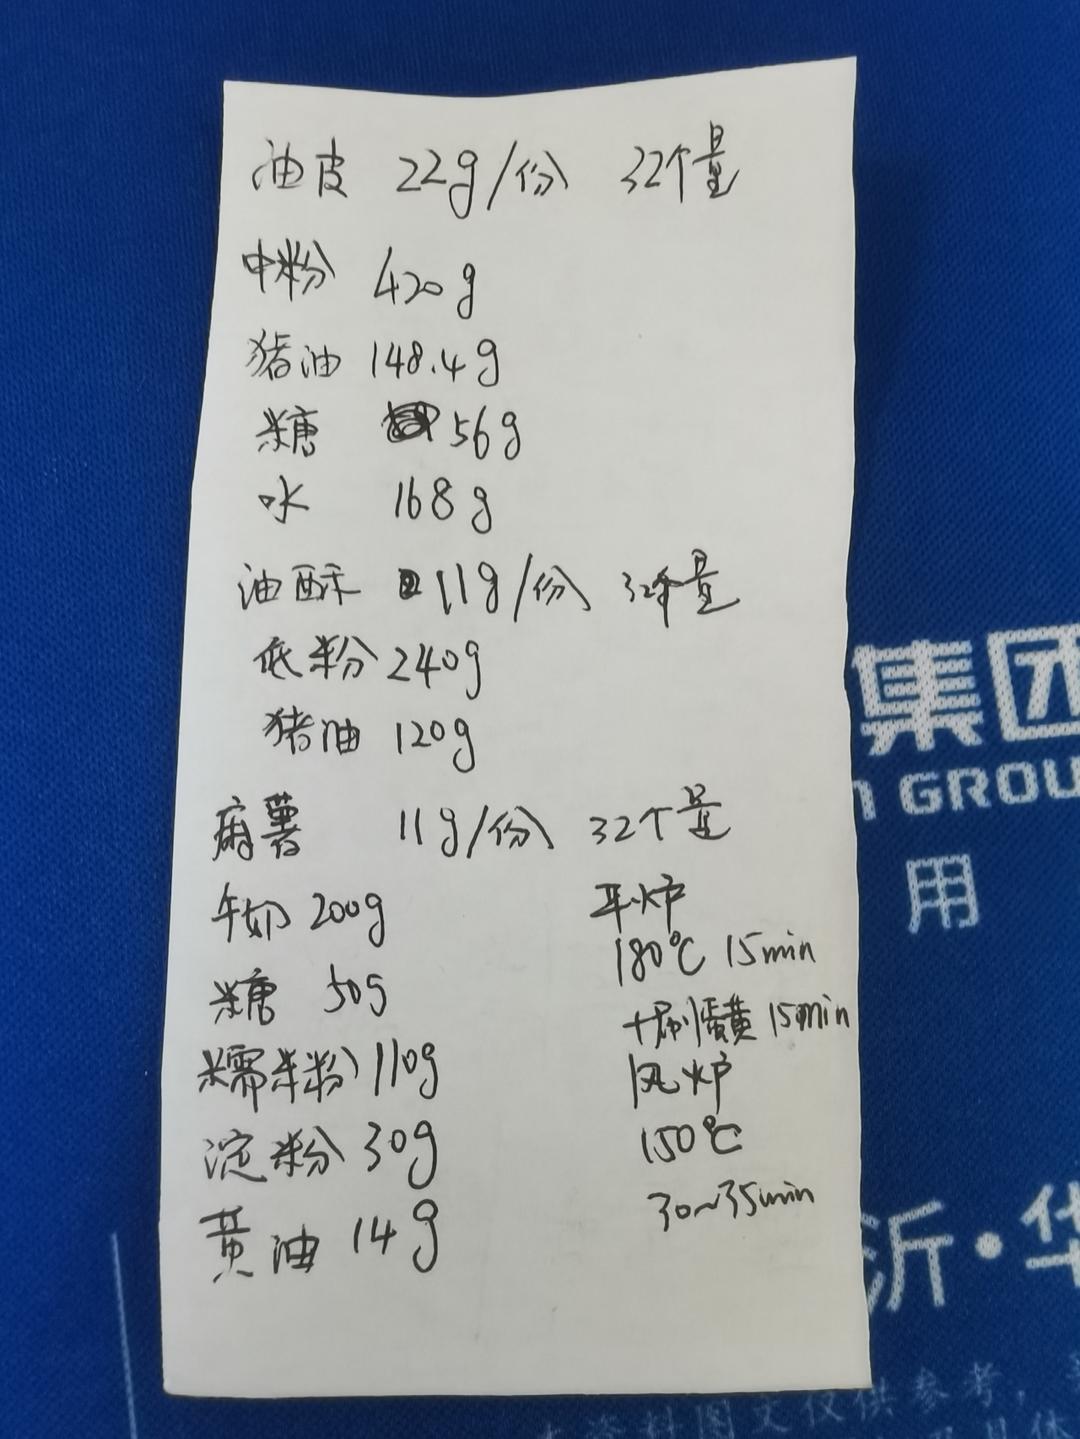 油皮 22g/份 32个量
中粉 420g
猪油 148.4g
糖 56g
水 168g
油酥 11g/份 32个量
低粉 240g
猪油 120g
麻薯 11g/份 32个量
牛奶 200g
糖 50g
糯米粉 110g
淀粉 30g
黄油 14g
平炉
180℃ 15min
+刷蛋黄 15min
风炉
150℃
30~35min
集团
GROU
用
沂·华
资料图文仅供参考,